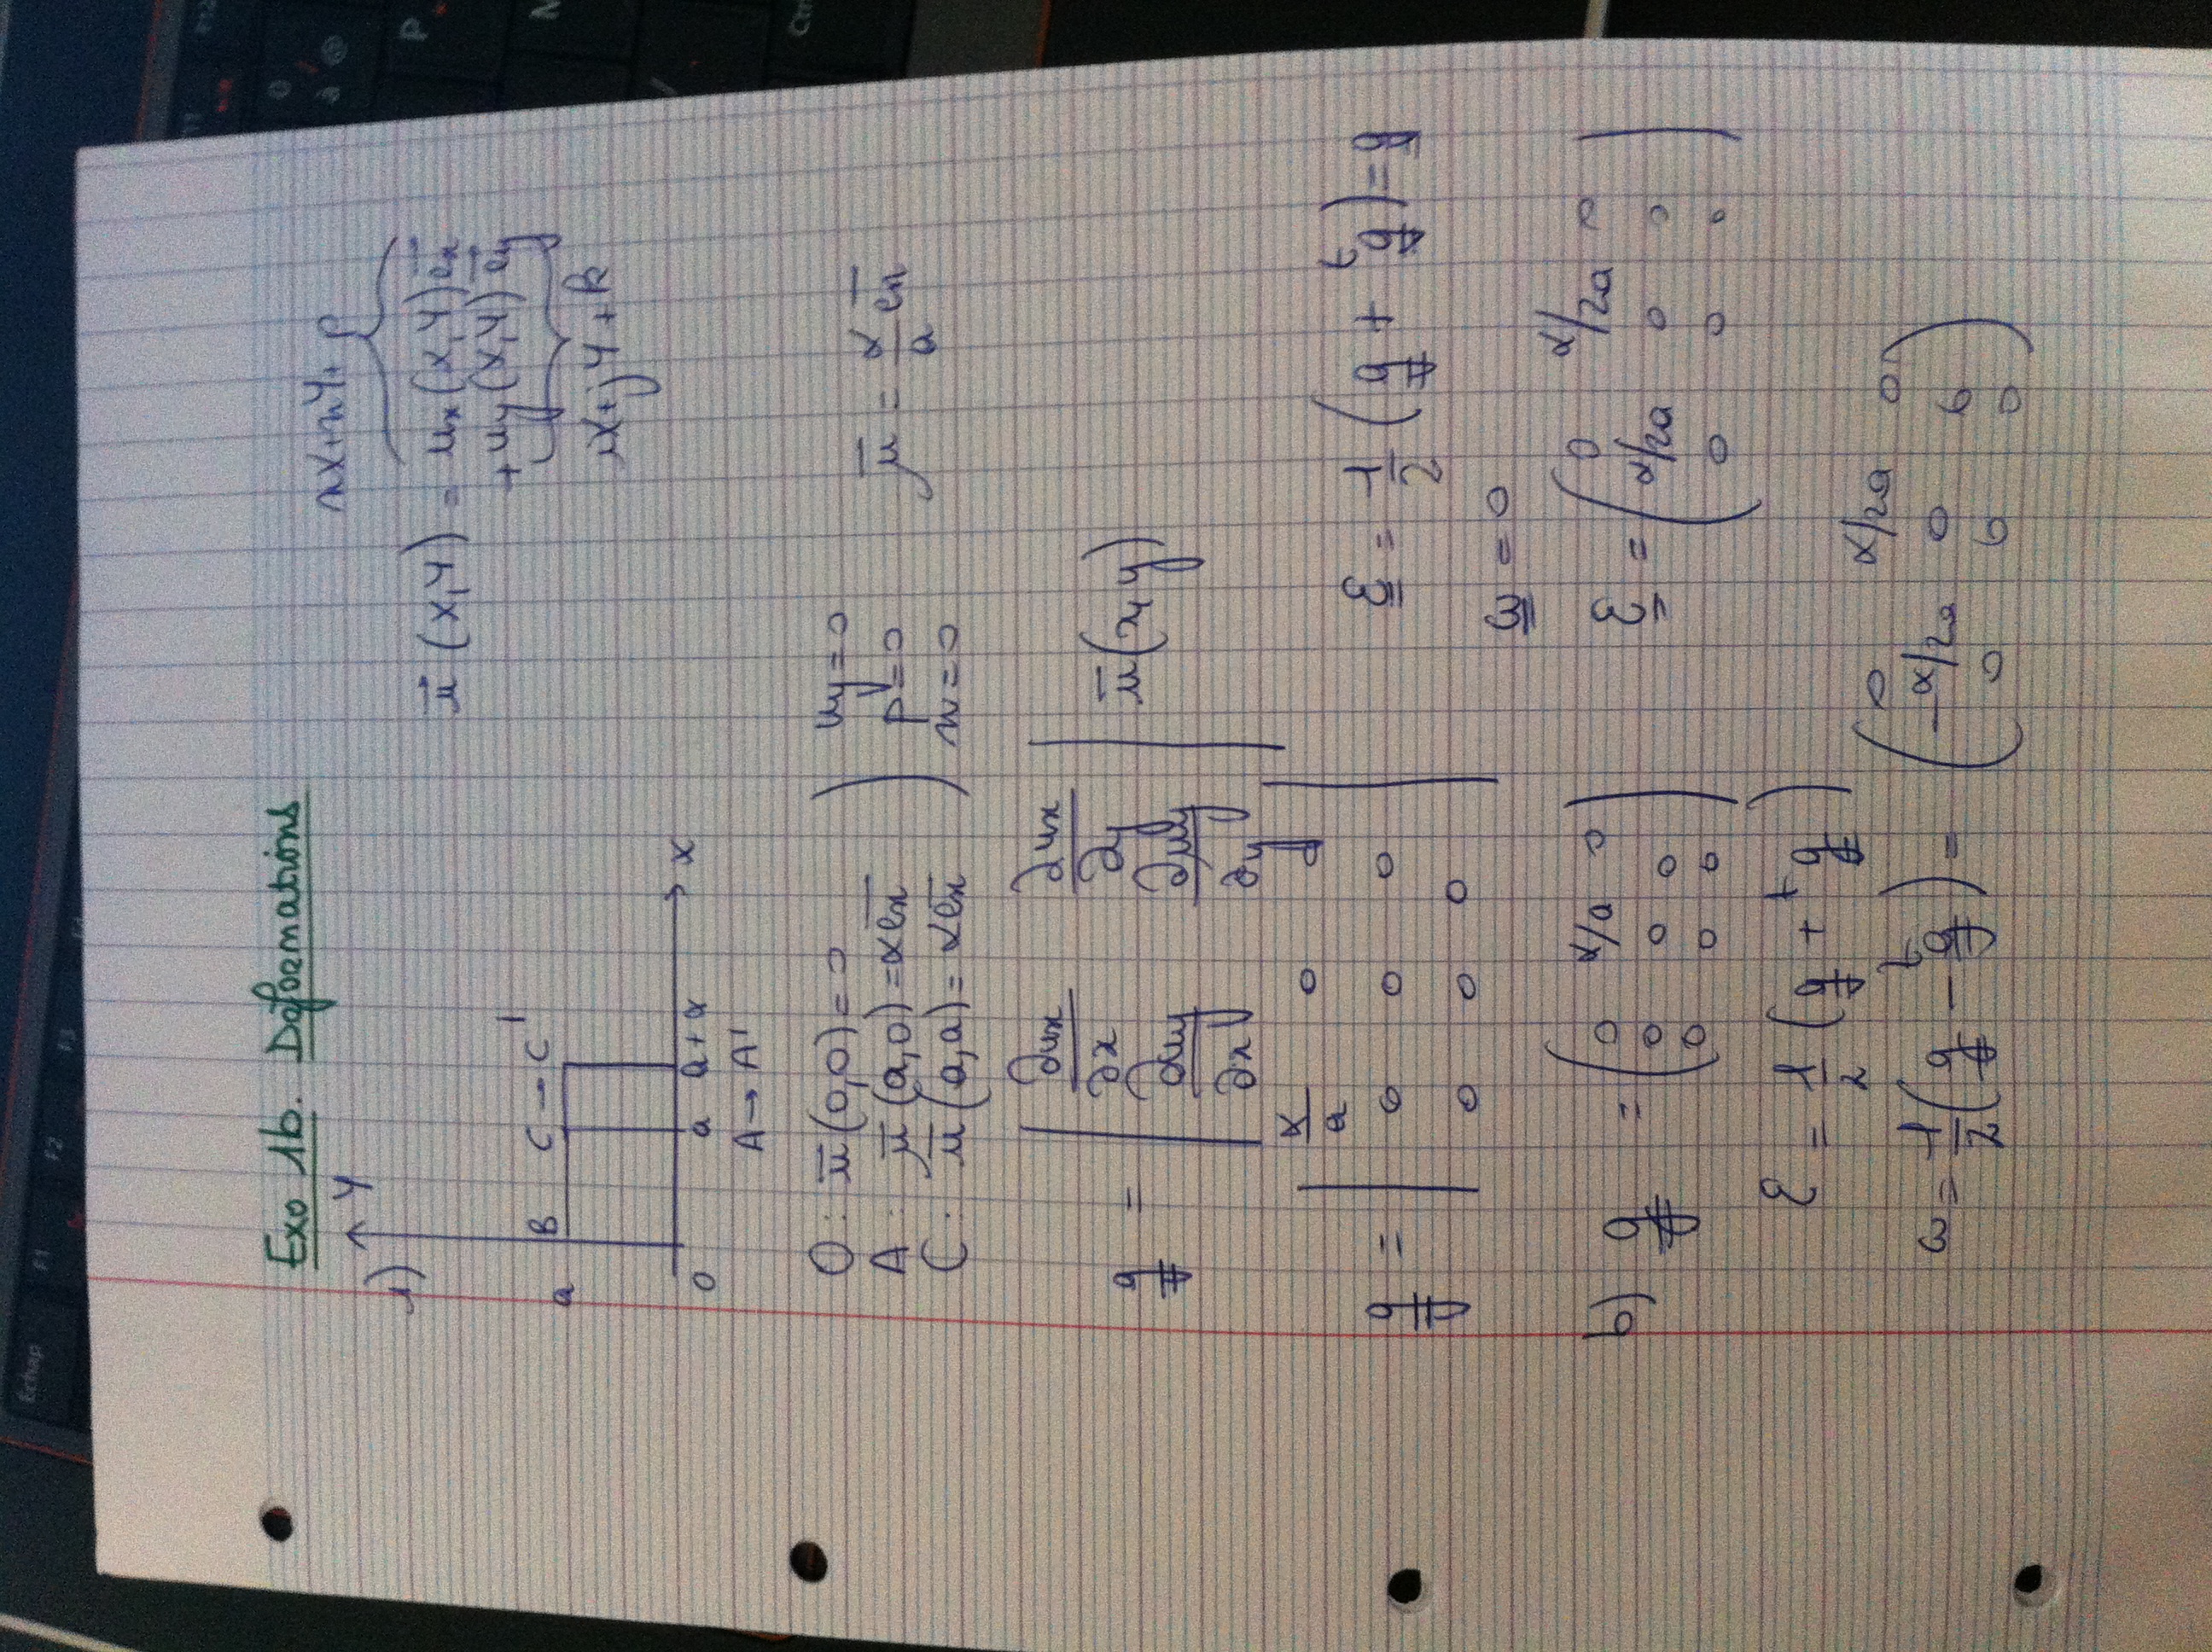 Échap F1 F2 F3 F4
Exo 1b. Deformations
1)
Y
a B C → C'
O a a + α x
A → A'
nX+nY+p
u⃗ (X,Y) = ux(X,Y)ex⃗
+ uy(X,Y) ey⃗
iX+jY+k
O : ū(0,0) = 0
A : ū(a,0) = αex̄
C : ū(a,a) = αex̄
uy = 0
p = 0
n = 0
ū = α/a ex̄
g = | ∂ux/∂x ∂ux/∂y | ū(x,y)
| ∂uy/∂x ∂uy/∂y |
g = | α/a 0 0 |
| 0 0 0 |
| 0 0 0 |
ε = 1/2 (g + ᵗg) = g
ω = 0
b) g = ( 0 α/a 0 )
( 0 0 0 )
( 0 0 0 )
ε = ( 0 α/2a 0 )
( α/2a 0 0 )
( 0 0 0 )
ε = 1/2 (g + ᵗg)
ω = 1/2 (g − ᵗg) = ( 0 α/2a 0 )
( −α/2a 0 0 )
( 0 0 0 )